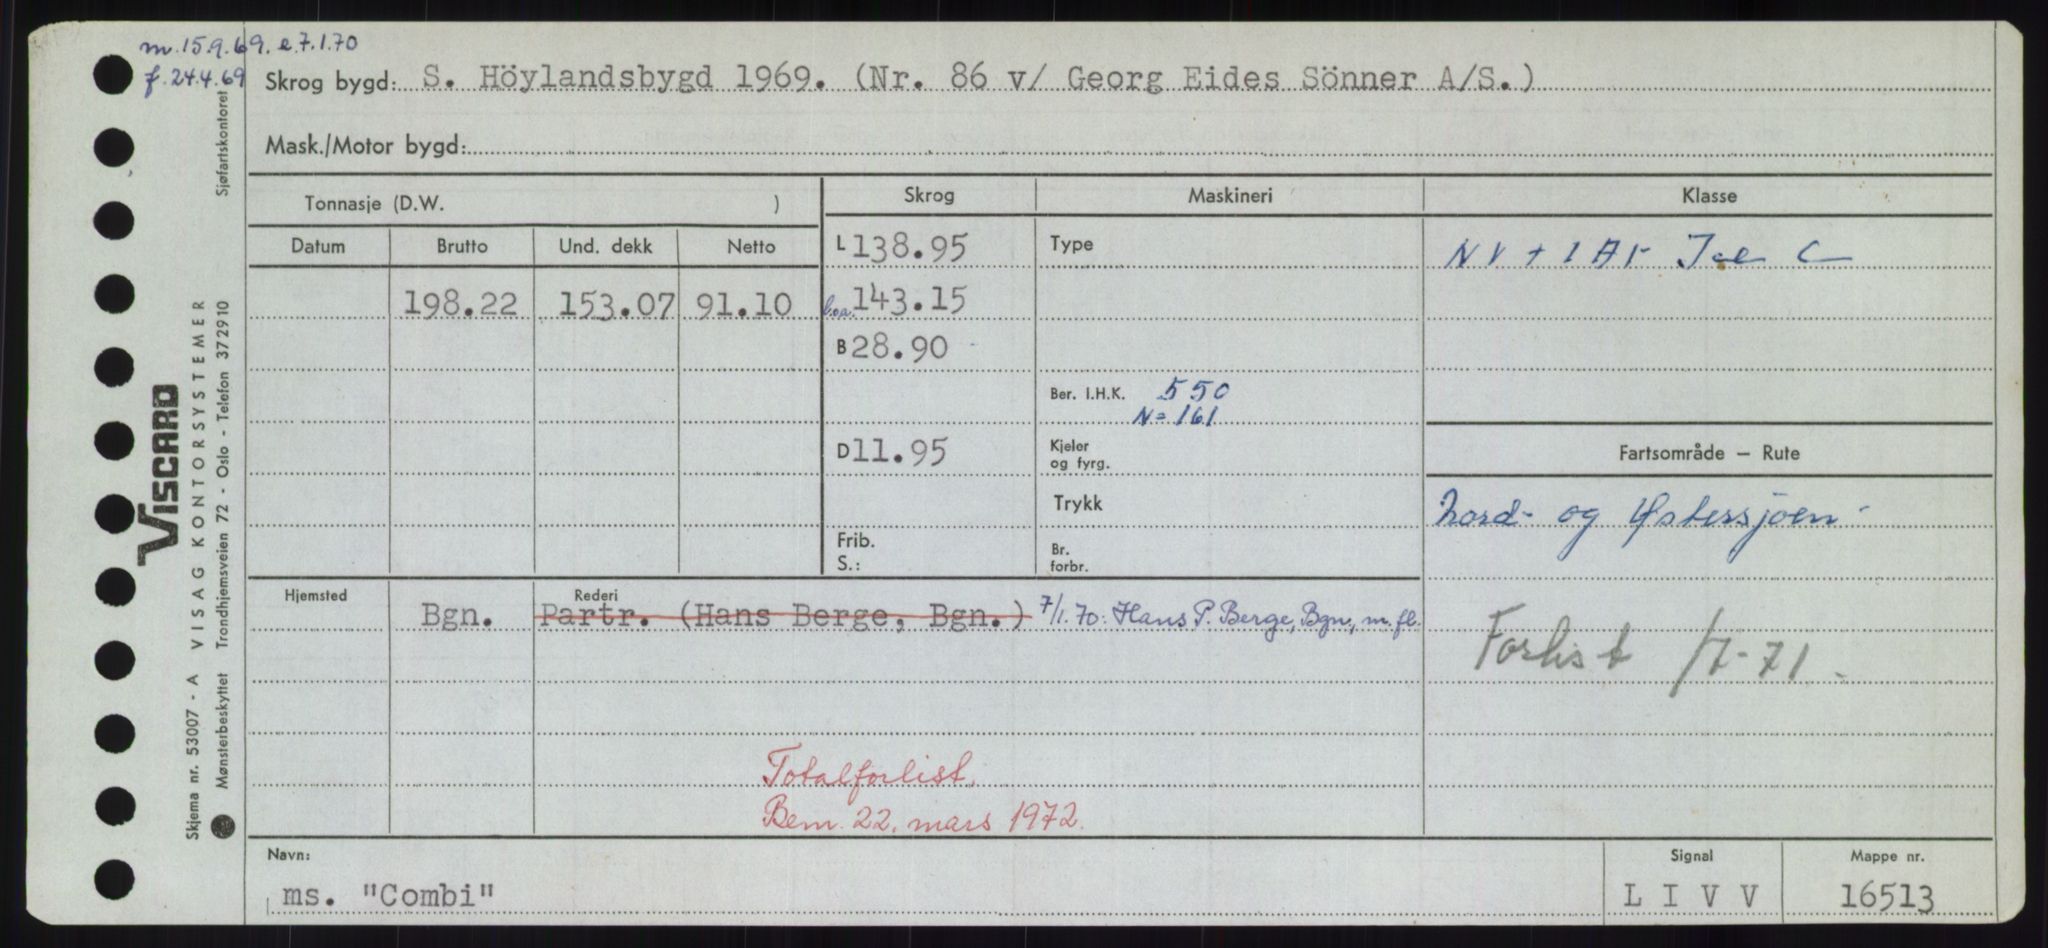 m. 15.9.69. e.7.1.70
f. 24.4.69
Skrog bygd: S. Höylandsbygd 1969. (Nr. 86 v/ Georg Eides Sönner A/S.)
Mask./Motor bygd:
Tonnasje (D.W. )
Skrog
Maskineri
Klasse
Datum Brutto Und. dekk Netto
198.22 153.07 91.10
L 138.95
l.oa. 143.15
B 28.90
D 11.95
Frib.
S.:
Type
Ber. I.H.K. 550
N= 161
Kjeler
og fyrg.
Trykk
Br.
forbr.
NV + 1 A1 - Ice C
Fartsområde – Rute
Nord- og Østersjøen
Forlist /7-71.
Hjemsted
Rederi
Bgn. Partr. (Hans Berge, Bgn.) 7/1.70: Hans P. Berge, Bgn., m.fl.
Totalforlist.
Bem. 22. mars 1972.
Navn:
ms. "Combi"
Signal
L I V V
Mappe nr.
16513
Sjøfartskontoret
VISCARD
VISAG KONTORSYSTEMER
Trondhjemsveien 72 - Oslo - Telefon 372910
Skjema nr. 53007 - A
Mønsterbeskyttet